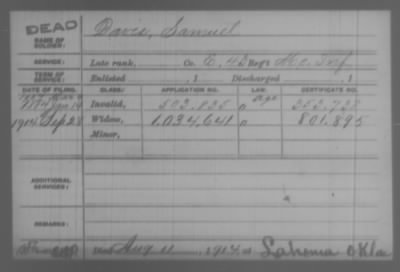 DEAD
NAME OF SOLDIER: Davis, Samuel
SERVICE: Late rank, Co. E, 43 Reg't Mo. Inf
TERM OF SERVICE: Enlisted , 1 Discharged , 1
DATE OF FILING. CLASS: APPLICATION NO. LAW. CERTIFICATE NO.
Invalid, 503,835
1914 Sep 28 Widow, 1,034,641 801,895
Minor,
ADDITIONAL SERVICES:
REMARKS:
Died Aug 11, 1914, at Lahoma Okla